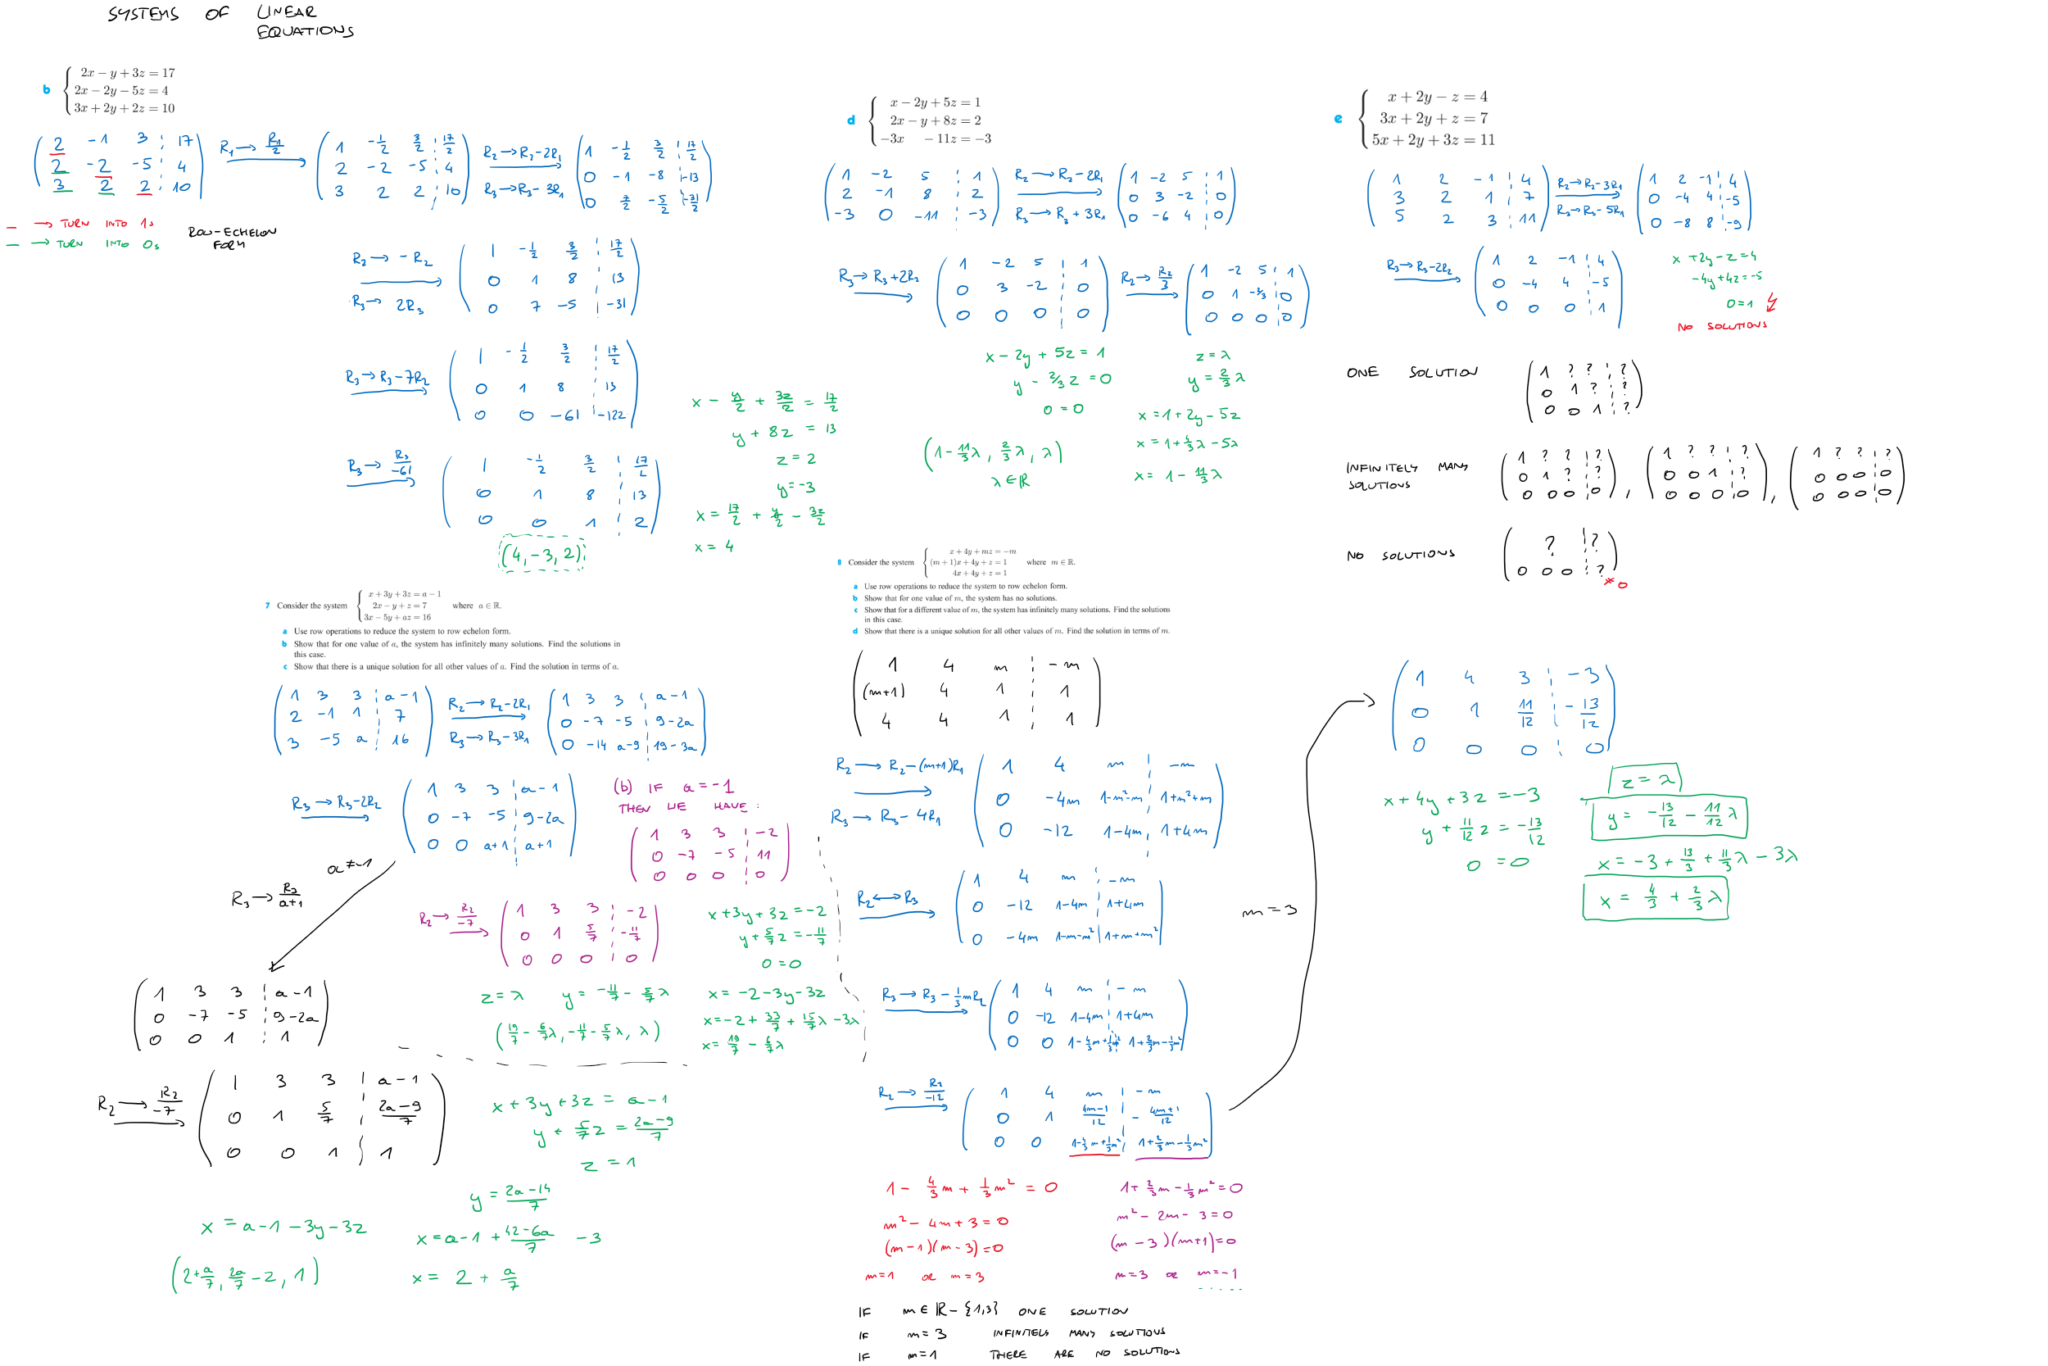 SYSTEMS OF LINEAR
EQUATIONS
b
2x − y + 3z = 17
2x − 2y − 5z = 4
3x + 2y + 2z = 10
2 -1 3 17
2 -2 -5 4
3 2 2 10
R₁→R₁/2
1 -1/2 3/2 17/2
2 -2 -5 4
3 2 2 10
R₂→R₂-2R₁
R₃→R₃-3R₁
1 -1/2 3/2 17/2
0 -1 -8 -13
0 7/2 -5/2 -31/2
— → TURN INTO 1s
— → TURN INTO 0s
ROW-ECHELON
FORM
R₂→ -R₂
R₃→ 2R₃
1 -1/2 3/2 17/2
0 1 8 13
0 7 -5 -31
R₃→R₃-7R₂
1 -1/2 3/2 17/2
0 1 8 13
0 0 -61 -122
R₃→R₃/-61
1 -1/2 3/2 17/2
0 1 8 13
0 0 1 2
(4,-3,2)
x - y/2 + 3z/2 = 17/2
y + 8z = 13
z = 2
y=-3
x = 17/2 + y/2 - 3z/2
x = 4
d
x − 2y + 5z = 1
2x − y + 8z = 2
−3x − 11z = −3
1 -2 5 1
2 -1 8 2
-3 0 -11 -3
R₂→R₂-2R₁
R₃→R₃+3R₁
1 -2 5 1
0 3 -2 0
0 -6 4 0
R₃→R₃+2R₂
1 -2 5 1
0 3 -2 0
0 0 0 0
R₂→R₂/3
1 -2 5 1
0 1 -2/3 0
0 0 0 0
x - 2y + 5z = 1
y - 2/3 z = 0
0 = 0
z = λ
y = 2/3 λ
x = 1+2y-5z
x = 1+4/3 λ-5λ
x = 1 - 11/3 λ
(1-11/3 λ, 2/3 λ, λ)
λ∈ℝ
e
x + 2y − z = 4
3x + 2y + z = 7
5x + 2y + 3z = 11
1 2 -1 4
3 2 1 7
5 2 3 11
R₂→R₂-3R₁
R₃→R₃-5R₁
1 2 -1 4
0 -4 4 -5
0 -8 8 -9
R₃→R₃-2R₂
1 2 -1 4
0 -4 4 -5
0 0 0 1
x+2y-z=4
-4y+4z=-5
0=1
NO SOLUTIONS
ONE SOLUTION
1 ? ? ?
0 1 ? ?
0 0 1 ?
INFINITELY MANY
SOLUTIONS
1 ? ? ?
0 1 ? ?
0 0 0 0
,
1 ? ? ?
0 0 1 ?
0 0 0 0
,
1 ? ? ?
0 0 0 0
0 0 0 0
NO SOLUTIONS
? ?
0 0 0 ?
≠0
7 Consider the system
x + 3y + 3z = a − 1
2x − y + z = 7
3x − 5y + az = 16
where a ∈ ℝ.
a Use row operations to reduce the system to row echelon form.
b Show that for one value of a, the system has infinitely many solutions. Find the solutions in
this case.
c Show that there is a unique solution for all other values of a. Find the solution in terms of a.
1 3 3 a-1
2 -1 1 7
3 -5 a 16
R₂→R₂-2R₁
R₃→R₃-3R₁
1 3 3 a-1
0 -7 -5 9-2a
0 -14 a-9 19-3a
R₃→R₃-2R₂
1 3 3 a-1
0 -7 -5 9-2a
0 0 a+1 a+1
a≠-1
R₃→R₃/a+1
(b) IF a=-1
THEN WE HAVE:
1 3 3 -2
0 -7 -5 11
0 0 0 0
R₂→R₂/-7
1 3 3 -2
0 1 5/7 -11/7
0 0 0 0
x+3y+3z=-2
y+5/7 z=-11/7
0=0
z=λ y=-11/7-5/7 λ
x=-2-3y-3z
x=-2+33/7+15/7 λ-3λ
x=19/7-6/7 λ
(19/7-6/7 λ, -11/7-5/7 λ, λ)
1 3 3 a-1
0 -7 -5 9-2a
0 0 1 1
R₂→R₂/-7
1 3 3 a-1
0 1 5/7 2a-9/7
0 0 1 1
x+3y+3z = a-1
y+5/7 z = 2a-9/7
z=1
y=2a-14/7
x = a-1-3y-3z
x=a-1+42-6a/7 -3
x = 2+a/7
(2+a/7, 2a/7-2, 1)
8 Consider the system
x + 4y + mz = −m
(m + 1)x + 4y + z = 1
4x + 4y + z = 1
where m ∈ ℝ.
a Use row operations to reduce the system to row echelon form.
b Show that for one value of m, the system has no solutions.
c Show that for a different value of m, the system has infinitely many solutions. Find the solutions
in this case.
d Show that there is a unique solution for all other values of m. Find the solution in terms of m.
1 4 m -m
(m+1) 4 1 1
4 4 1 1
R₂→R₂-(m+1)R₁
R₃→R₃-4R₁
1 4 m -m
0 -4m 1-m²-m 1+m²+m
0 -12 1-4m 1+4m
R₂↔R₃
1 4 m -m
0 -12 1-4m 1+4m
0 -4m 1-m-m² 1+m+m²
R₃→R₃-1/3 mR₂
1 4 m -m
0 -12 1-4m 1+4m
0 0 1-4/3m+1/3m² 1+2/3m-1/3m²
R₂→R₂/-12
1 4 m -m
0 1 4m-1/12 -4m+1/12
0 0 1-4/3m+1/3m² 1+2/3m-1/3m²
1-4/3m+1/3m²=0
m²-4m+3=0
(m-1)(m-3)=0
m=1 or m=3
1+2/3m-1/3m²=0
m²-2m-3=0
(m-3)(m+1)=0
m=3 or m=-1
IF m∈ℝ-{1,3} ONE SOLUTION
IF m=3 INFINITELY MANY SOLUTIONS
IF m=1 THERE ARE NO SOLUTIONS
m=3
1 4 3 -3
0 1 11/12 -13/12
0 0 0 0
x+4y+3z=-3
y+11/12 z=-13/12
0=0
z=λ
y=-13/12-11/12 λ
x=-3+13/3+11/3 λ-3λ
x=4/3+2/3 λ